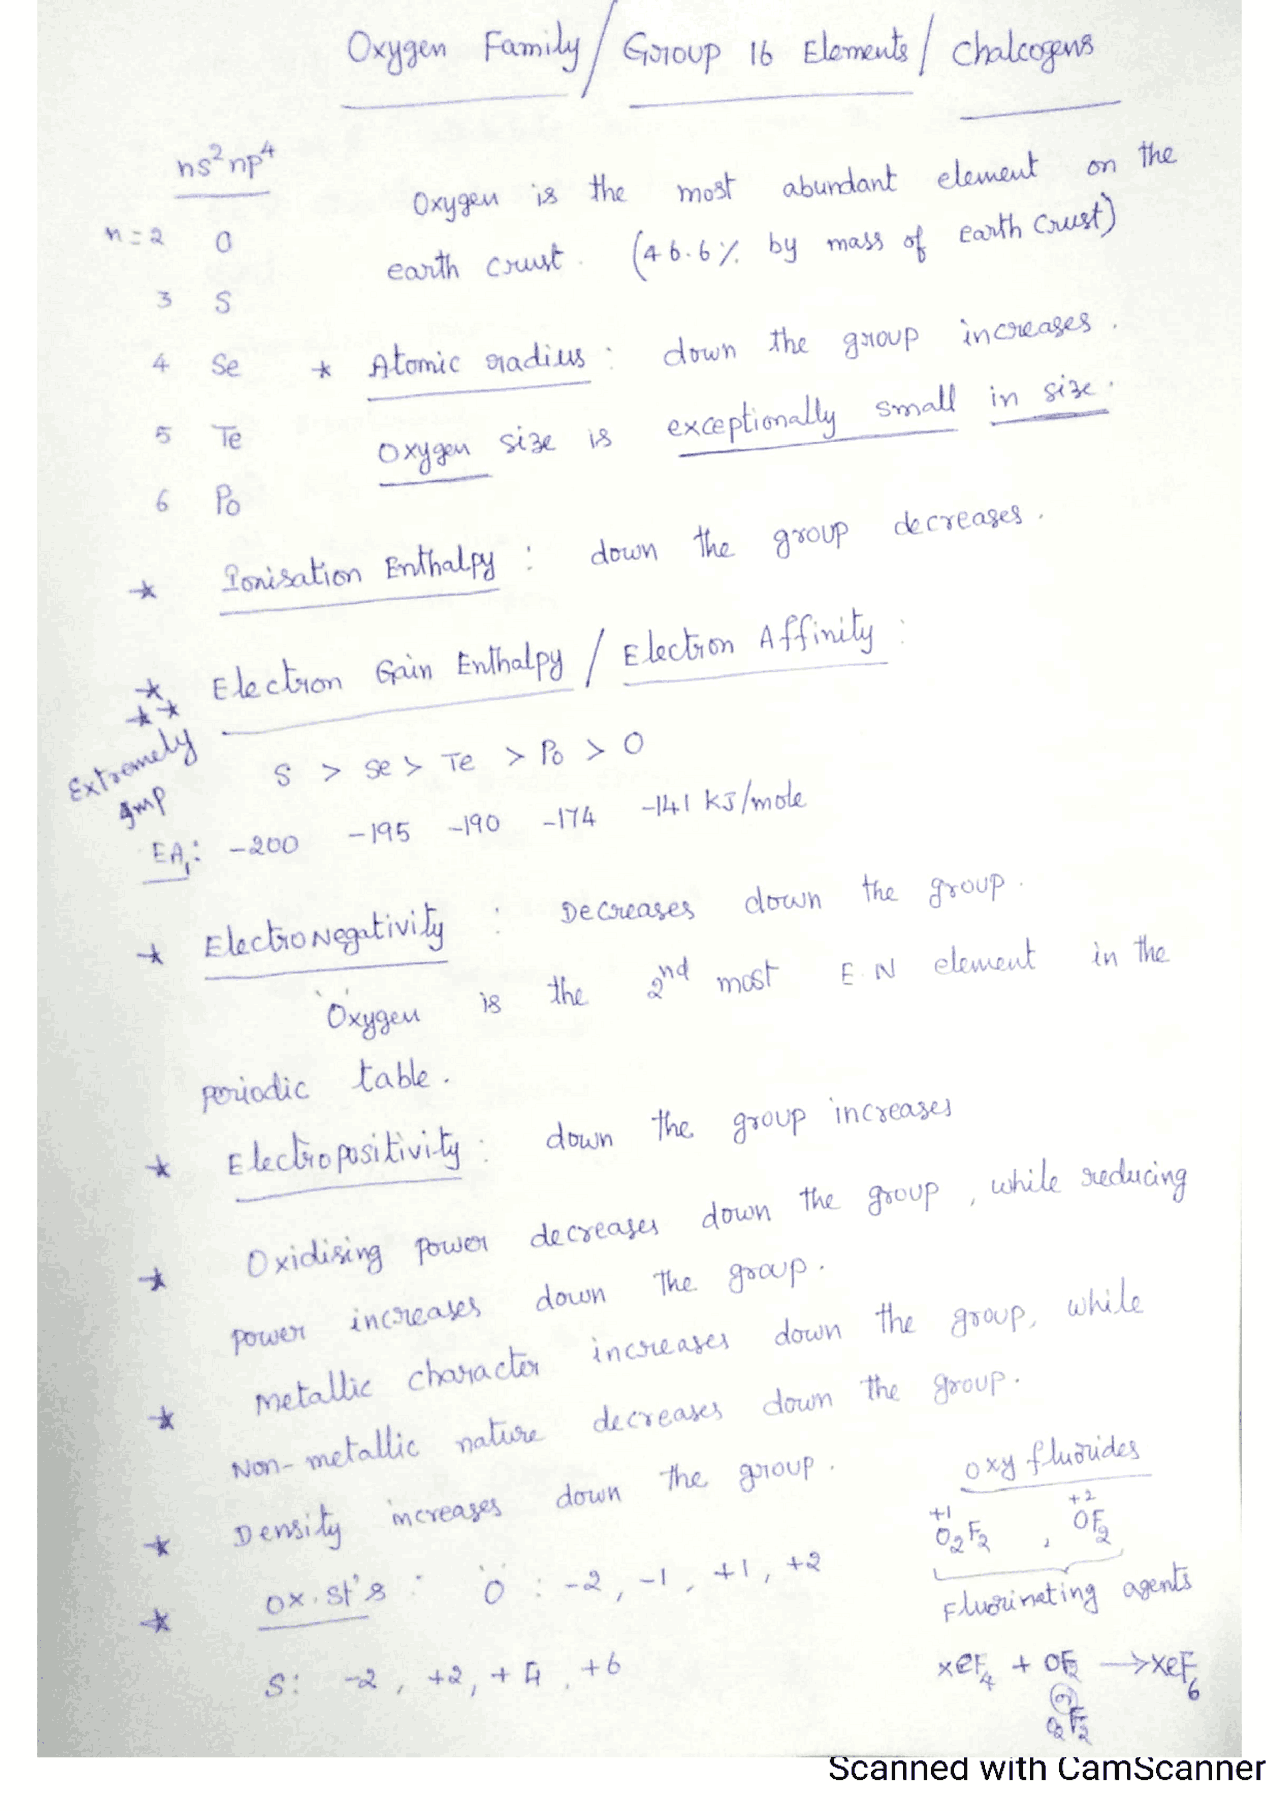 Oxygen Family / Group 16 Elements / Chalcogens
ns² np⁴
Oxygen is the most abundant element on the
n = 2 O
earth crust. (46.6% by mass of earth crust)
3 S
4 Se * Atomic radius : down the group increases.
5 Te Oxygen size is exceptionally small in size.
6 Po
* Ionisation Enthalpy : down the group decreases.
*** Electron Gain Enthalpy / Electron Affinity :
Extremely Imp
S > Se > Te > Po > O
EA₁: -200 -195 -190 -174 -141 kJ/mole
* ElectroNegativity : Decreases down the group.
Oxygen is the 2nd most E.N element in the
periodic table.
* Electropositivity : down the group increases
* Oxidising power decreases down the group, while reducing
power increases down the group.
* Metallic character increases down the group, while
Non-metallic nature decreases down the group.
* Density increases down the group.
oxy fluorides
+1 +2
O₂F₂ , OF₂
* ox. st's : O : -2, -1, +1, +2
Fluorinating agents
S: -2, +2, +4, +6
XeF₄ + OF₂ → XeF₆
(or)
O₂F₂
Scanned with CamScanner